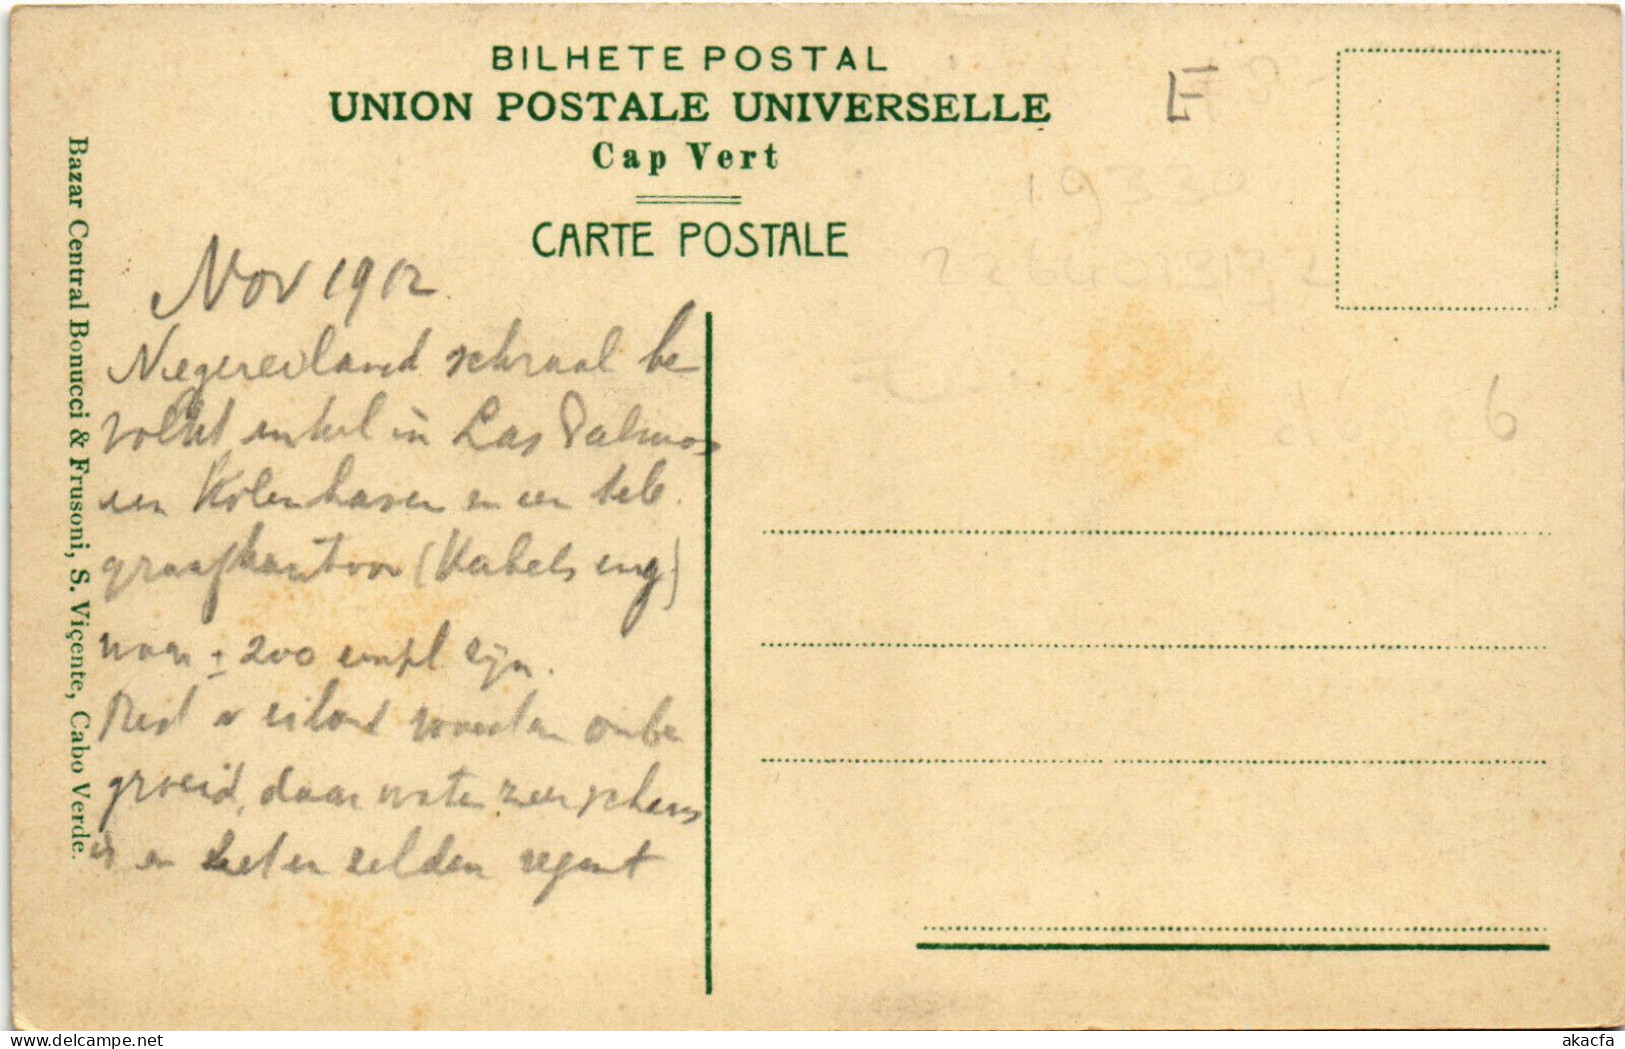 BILHETE POSTAL
UNION POSTALE UNIVERSELLE
Cap Vert
CARTE POSTALE
Bazar Central Bonucci & Frusoni, S. Viçente, Cabo Verde.
Nov 1912.
Negereiland schraal be
volkt enkel in Las Palmas
een Kolenhaven en een tele
graafkantoor (Kabels eng)
waar ± 200 empl zijn.
Rest v eiland woesten onbe
groeid, daar water zeer schaars
is en het er zelden regent
E
19330
6
delcampe.net
akacfa